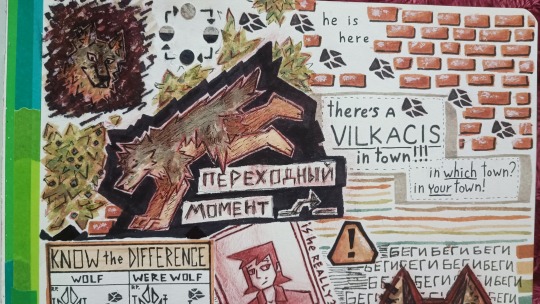 he is
here
there's A
VILKACIS
in town!!!
in which town?
in your town!
ПЕРЕХОДНЫЙ
МОМЕНТ
KNOW the DIFFERENCE
WOLF
WEREWOLF
is he REALLY?
!
БЕГИ БЕГИ БЕГИ
БЕГИ БЕГИ БЕГИ БЕГИ